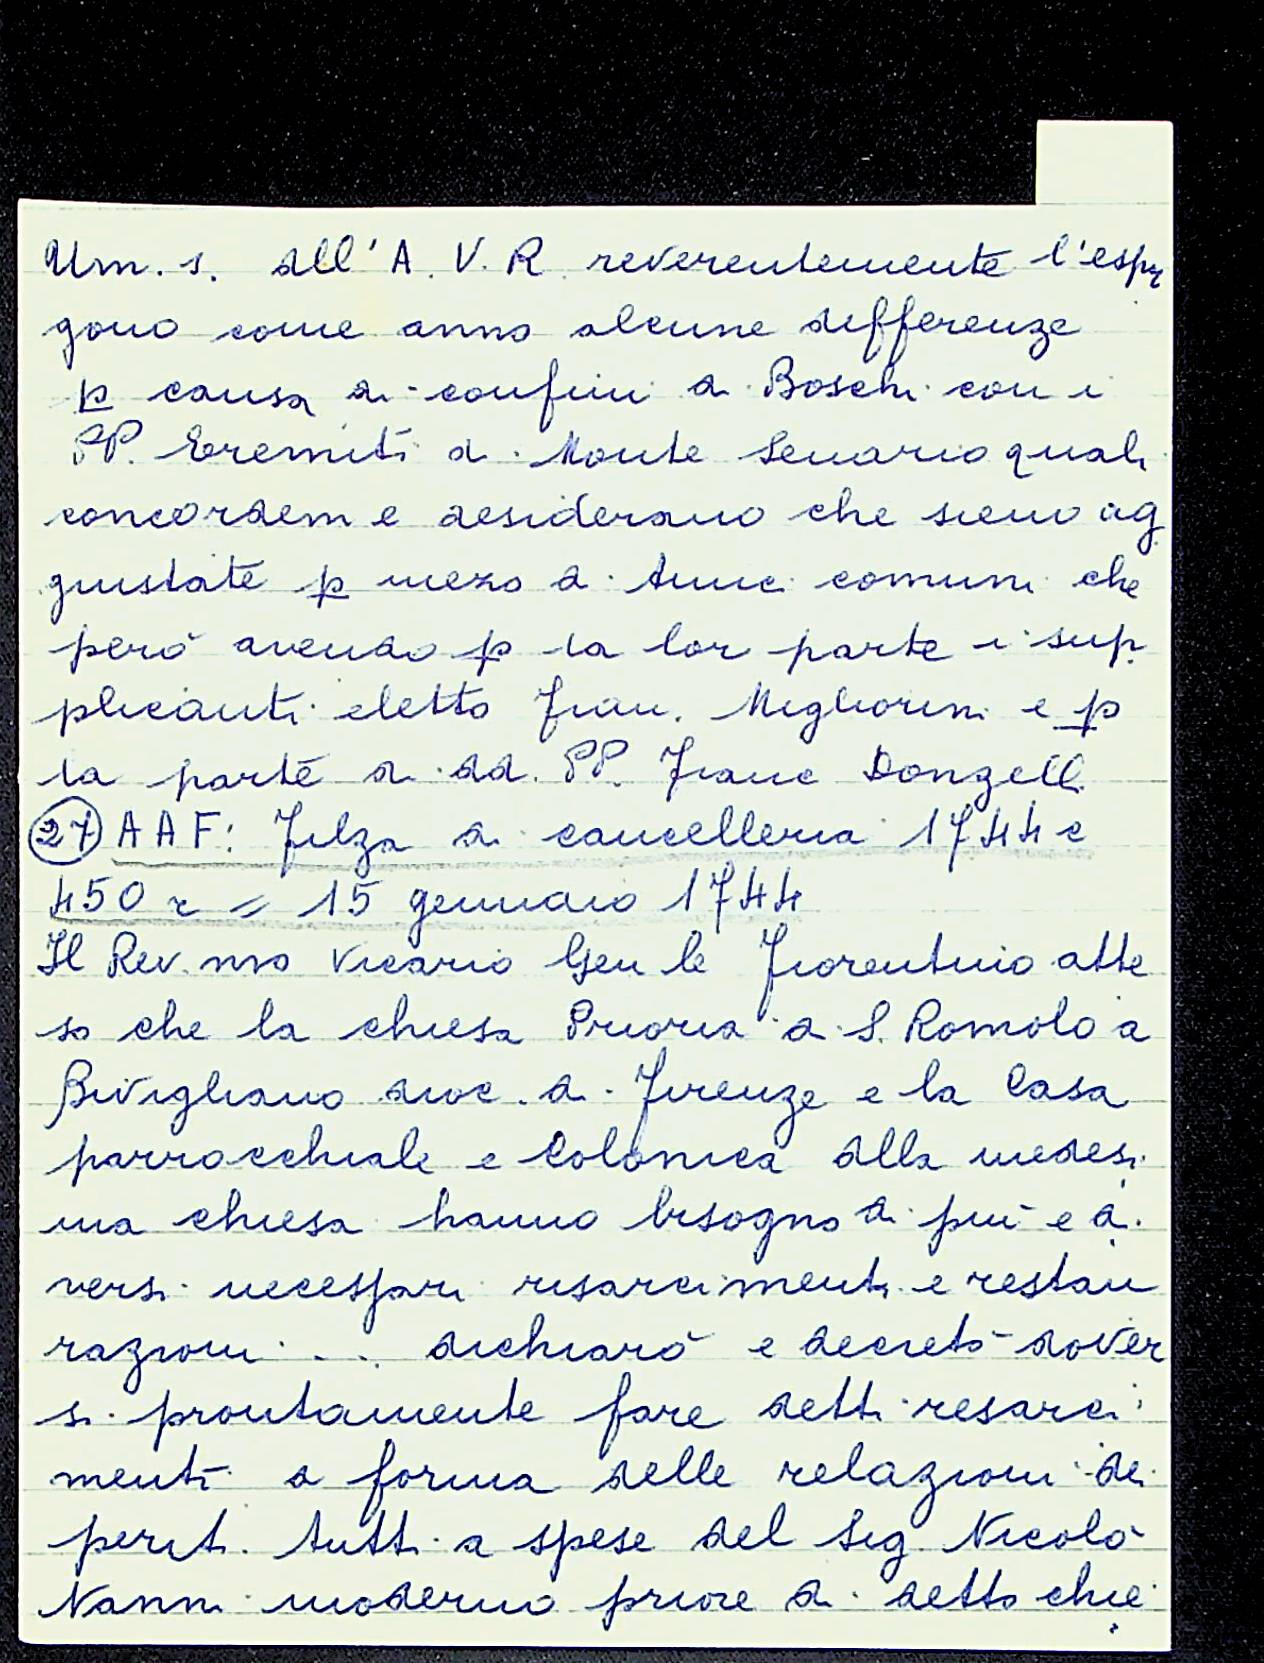 Um. s. all'A. V. R. reverentemente l'espr
gono come anno alcune differenze
p causa di confini di Boschi con i
PP. Eremiti di Monte Senario quali
concordem e desiderano che sieno ag
giustate p mezo di comuni che
però avendo p la lor parte i sup
plicanti eletto Fran. Migliorini e p
la parte di dd. PP. Franc Donzell
(27) AAF: Filza di cancelleria 1744 c
450 r = 15 gennaio 1744
Il Rev. mo Vicario Gen le Fiorentino atte
so che la chiesa Prioria di S. Romolo a
Bivigliano dioc. di Firenze e la Casa
parrocchiale e Colonica alla medesi
ma chiesa hanno bisogno di più e di
versi necessari risarcimenti e restau
razioni ... dichiarò e decretò dover
si prontamente fare detti resarci
menti a forma delle relazioni de
periti tutti a spese del Sig. Nicolò
Nanni moderno priore di detto chie